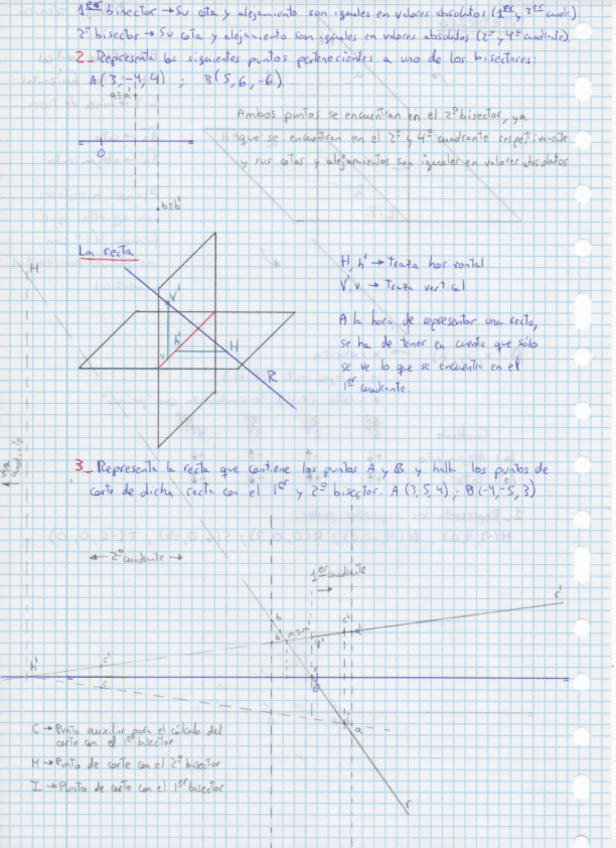 1er bisector → Su cota y alejamiento son iguales en valores absolutos (1er y 3er cuadr.)
2º bisector → Su cota y alejamiento son iguales en valores absolutos (2º y 4º cuadrante)
2_ Representa los siguientes puntos pertenecientes a uno de los bisectores:
A(3,-4,4) ; B(5,6,-6)
a≡a'
Ambos puntos se encuentran en el 2º bisector, ya
que se encuentran en el 2º y 4º cuadrante respectivamente
y sus cotas y alejamientos son iguales en valores absolutos
O
b≡b'
La recta
H
H, h' → Traza horizontal
V', v → Traza vertical
V'
h'
H
v
R
A la hora de representar una recta,
se ha de tener en cuenta que sólo
se ve lo que se encuentra en el
1er cuadrante.
3_ Representa la recta que contiene los puntos A y B y halla los puntos de
corte de dicha recta con el 1er y 2º bisector. A(3,5,4); B(-4,-5,3)
← 2º cuadrante →
1er cuadrante
→
r'
b
b'
m≡m'
V'
c'
a'
h'
c'
c
v
O
a
r
C → Punto auxiliar para el cálculo del
corte con el 1er bisector
M → Punto de corte con el 2º bisector
I → Punto de corte con el 1er bisector